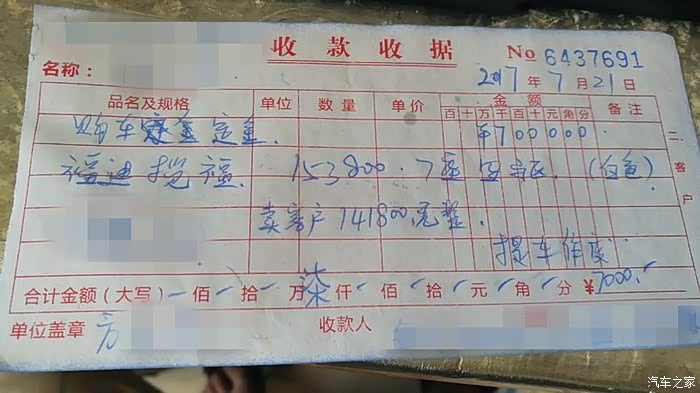 收款收据 No 6437691
名称： 2017年7月21日
品名及规格 单位 数量 单价 金额 备注
百十万千百十元角分
购车定金 ¥700000
福迪揽福 153800.7座 (白色)
卖客户141800元整.
提车作废
合计金额(大写) 佰 拾 万柒仟 佰 拾 元 角 分 ¥7000.
单位盖章 收款人
二 客户
汽车之家